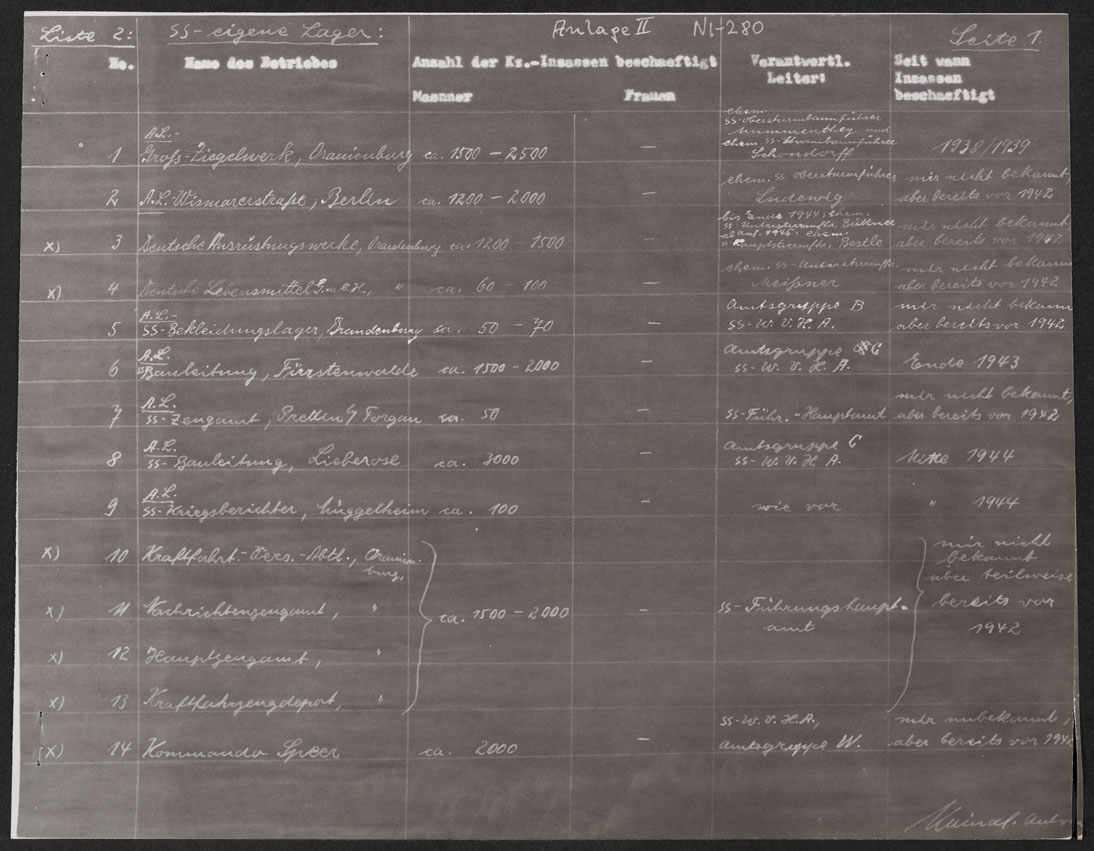 Liste 2: SS-eigene Lager: Anlage II NI-280 Seite 1.
No. Name des Betriebes Anzahl der Kz.-Insassen beschaeftigt Verantwortl. Leiter: Seit wann Insassen beschaeftigt
Maenner Frauen
A.L.-
1 Groß-Ziegelwerk, Oranienburg ca. 1500 – 2500 — ehem. SS-Obersturmbannführer Mummenthey und ehem. SS-Sturmbannführer Schondorff 1938/1939
2 A.L. Wismarerstraße, Berlin ca. 1200 – 2000 — ehem. SS Obersturmführer Ludewig mir nicht bekannt, aber bereits vor 1942
x) 3 Deutsche Ausrüstungswerke, ca. 1200 – 1500 — bis Ende 1944, ehem. SS ab Anf. 1945: ehem. " Hauptsturmfhr. Bestle mir nicht bekannt aber bereits vor 1942
x) 4 Deutsche Lebensmittel G.m.b.H., " ca. 60 – 100 — ehem. SS- Meißner mir nicht bekann aber bereits vor 1942
A.L.-
5 SS-Bekleidungslager, Brandenburg ca. 50 – 70 — Amtsgruppe B SS-W.V.H.A. mir nicht bekann aber bereits vor 1942
A.L.
6 SS Bauleitung, Fürstenwalde ca. 1500 – 2000 — Amtsgruppe C SS-W.V.H.A. Ende 1943
A.L.
7 SS-Zeugamt, Prettin b/ Torgau ca. 50 — SS-Führ.-Hauptamt mir nicht bekannt, aber bereits vor 1942
A.L.
8 SS-Bauleitung, Lieberose ca. 3000 — Amtsgruppe C SS-W.V.H.A. Mitte 1944
A.L.
9 SS-Kriegsberichter, ca. 100 — wie vor " 1944
x) 10 Kraftfahrt-Vers.-Abtl., Oranienburg,
x) 11 Nachrichtenzeugamt, " ca. 1500 – 2000 — SS-Führungshauptamt mir nicht bekannt aber teilweise bereits vor 1942
x) 12 Hauptzeugamt, "
x) 13 Kraftfahrzeugdepot, "
x) 14 Kommando Speer ca. 2000 — SS-W.V.H.A., Amtsgruppe W. mir unbekannt, aber bereits vor 1942